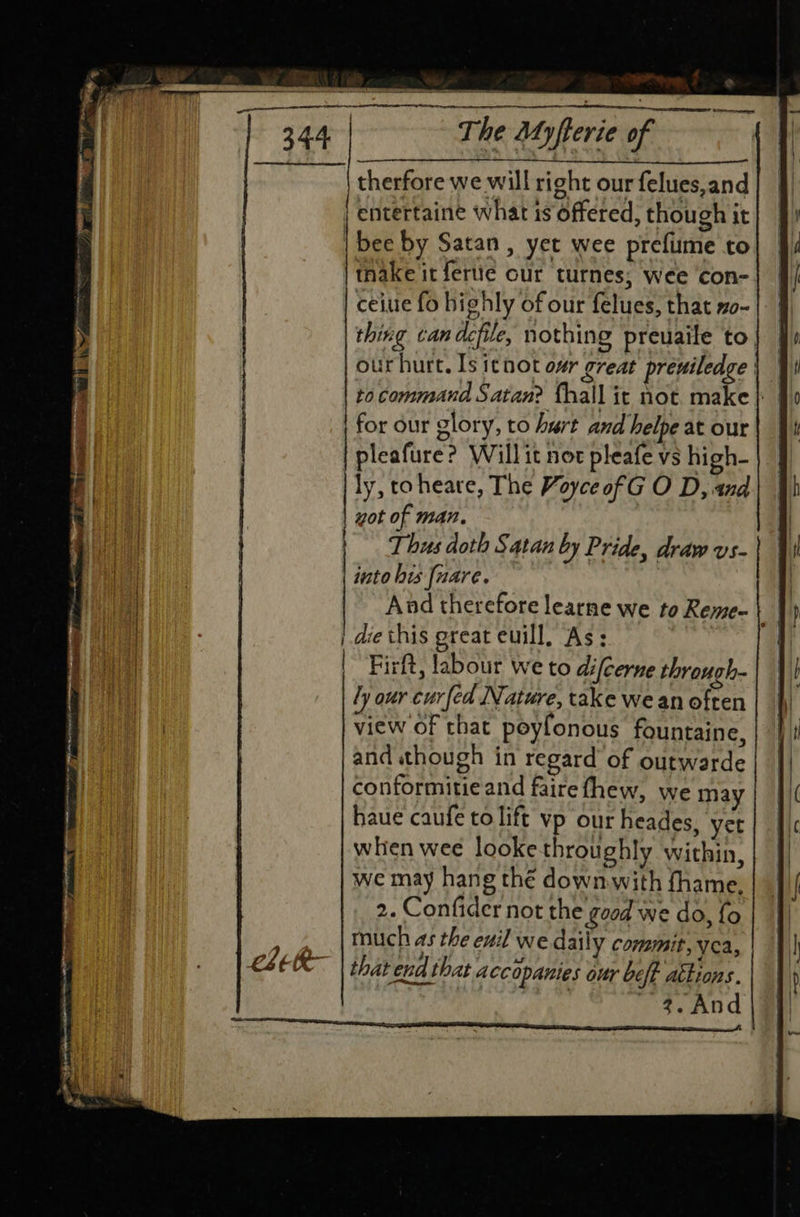 344 The Myſterie of
therfore we will right our ſelues, and
entertaine what is offered, though it
bee by Satan, yet wee preſume to
make it ſerue our turnes, wee con-
ceiue ſo highly of our ſelues, that no-
thing can defile, nothing preuaile to
our hurt. Is it not our great preuiledge
to command Satan? ſhall it not make
for our glory, to hurt and helpe at our
pleaſure? Will it not pleaſe vs high-
ly, to heare, The Voyce of G O D, and
not of man.
Thus doth Satan by Pride, draw vs
into his ſnare.
And therefore learne we to Reme-
die this great euill. As:
Firſt, labour we to diſcerne through-
ly our curſed Nature, take we an often
view of that poyſonous fountaine,
and though in regard of outwarde
conformitie and faire ſhew, we may
haue cauſe to lift vp our heades, yet
when wee looke throughly within,
we may hang thē down with ſhame.
2. Conſider not the good we do, ſo
much as the euil we daily commit, yea,
that end that accōpanies our beſt actions.
3. And